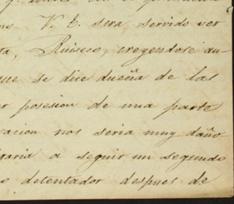 V. E. sera servido ver
ta, Ruiseco, creyendose au
que se dice dueña de las
r posesion de una parte
racion nos seria muy daño
garia a seguir un segundo
detentador despues de